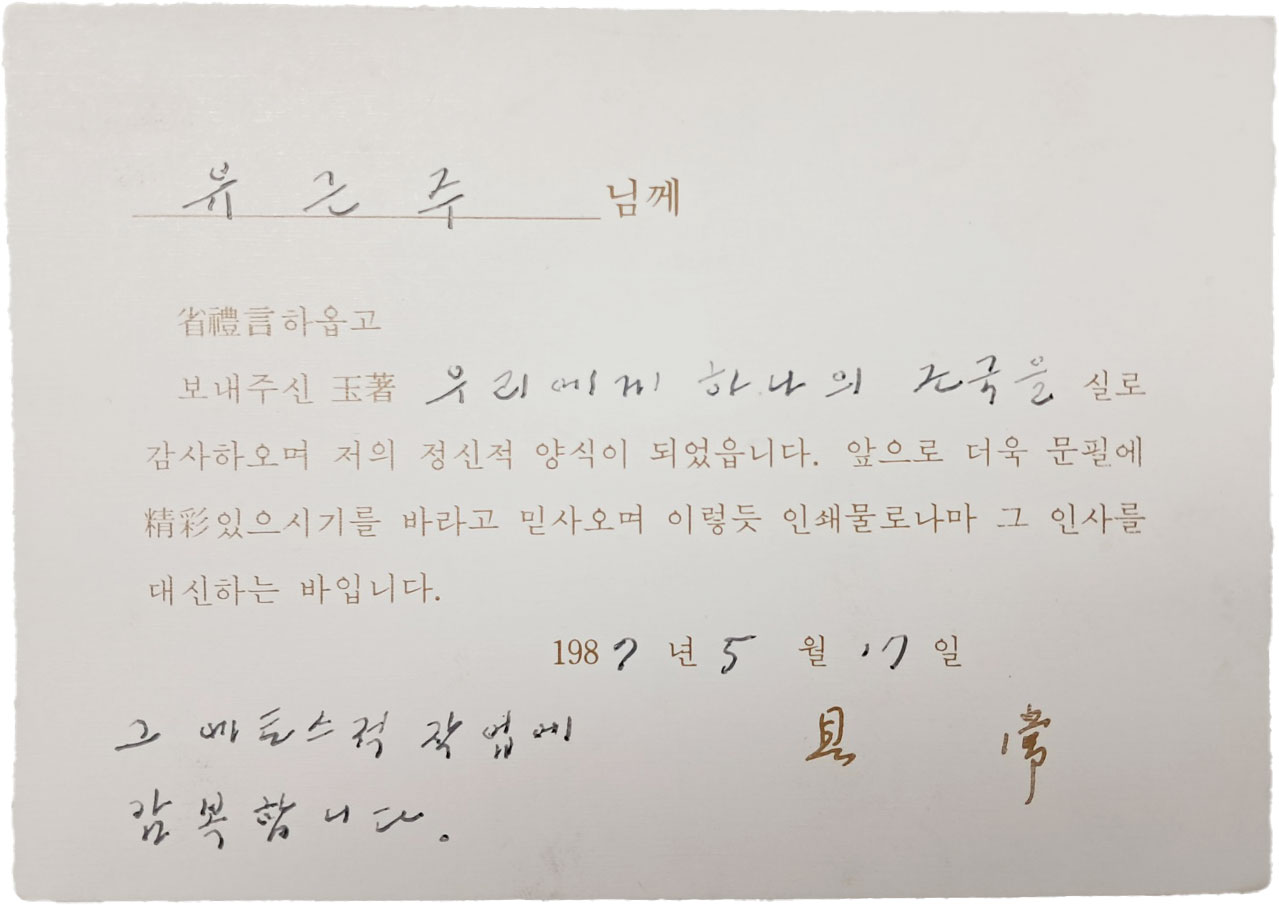 류 근 주 님께
省禮言하옵고
보내주신 玉著 우리에게 하나의 조국을 실로
감사하오며 저의 정신적 양식이 되었읍니다. 앞으로 더욱 문필에
精彩있으시기를 바라고 믿사오며 이렇듯 인쇄물로나마 그 인사를
대신하는 바입니다.
1987년 5월 17일
그 에토스적 작업에
具 常
감복합니다.